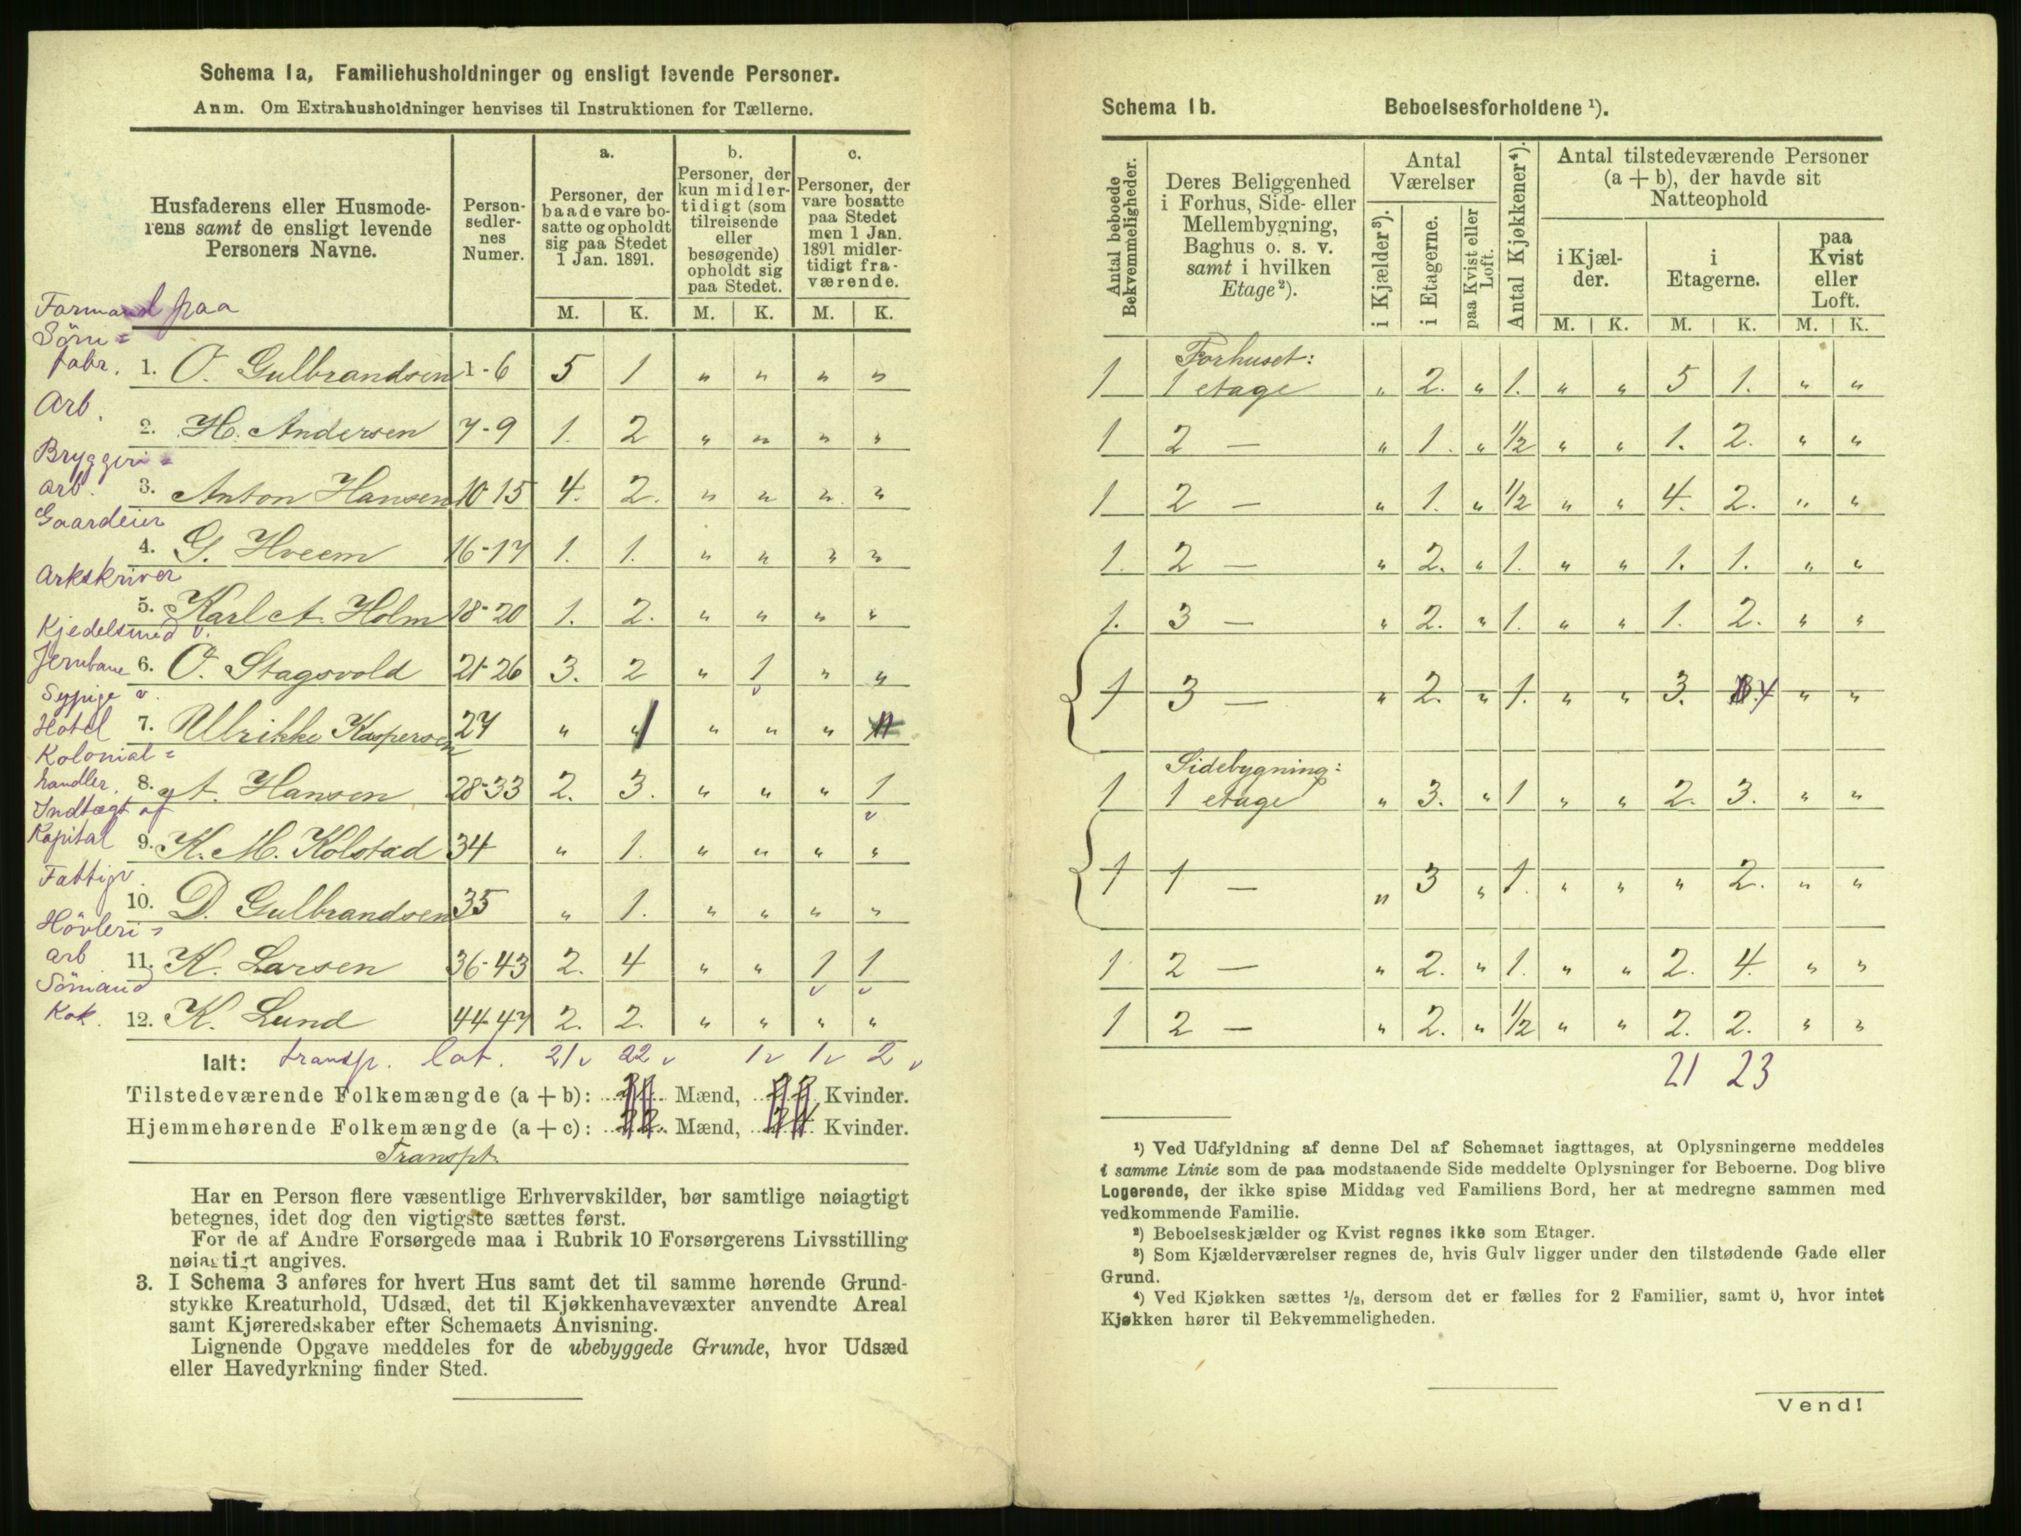 Schema 1a, Familiehusholdninger og ensligt levende Personer.
Anm. Om Extrahusholdninger henvises til Instruktionen for Tællerne.
Husfaderens eller Husmode-
rens samt de ensligt levende
Personers Navne.
Person-
sedler-
nes
Numer.
a.
Personer, der
baade vare bo-
satte og opholdt
sig paa Stedet
1 Jan. 1891.
b.
Personer, der
kun midler-
tidigt (som
tilreisende
eller
besøgende)
opholdt sig
paa Stedet.
c.
Personer, der
vare bosatte
paa Stedet
men 1 Jan.
1891 midler-
tidigt fra-
værende.
M. K. M. K. M. K.
Formand paa
Söm=
fabr. 1. O. Gulbrandsen 1-6 5 1 " " " "
Arb.
2. H. Andersen 7-9 1. 2 " " " "
Bryggeri=
arb. 3. Anton Hansen 10-15 4. 2. " " " "
Gaardeier
4. G. Hveem 16-17 1. 1. " " " "
Arkskriver
5. Karl A. Holm 18-20 1. 2. " " " "
Kjedelsmed v.
Jernbane 6. O. Stagsvold 21-26 3. 2 " 1 " "
Sypige v.
Hotel 7. Ulrikke Kaspersen 27 " 1 " " " "
Kolonial=
handler. 8. A. Hansen 28-33 2. 3. " " " 1
Indtægt af
Kapital 9. K. M. Kolstad 34 " 1. " " " "
Fattigv.
10. D. Gulbrandsen 35 " 1. " " " "
Hövleri=
arb 11. K. Larsen 36-43 2. 4 " " 1 1
Sömand
Kok. 12. K. Lund 44-47 2. 2. " " " "
Ialt: transp. Lat. 21 22 1 1 2
Tilstedeværende Folkemængde (a + b): Mænd, Kvinder.
Hjemmehørende Folkemængde (a + c): Mænd, Kvinder.
Transpt.
Har en Person flere væsentlige Erhvervskilder, bør samtlige nøiagtigt
betegnes, idet dog den vigtigste sættes først.
For de af Andre Forsørgede maa i Rubrik 10 Forsørgerens Livsstilling
nøiagtigt angives.
3. I Schema 3 anføres for hvert Hus samt det til samme hørende Grund-
stykke Kreaturhold, Udsæd, det til Kjøkkenhavevæxter anvendte Areal
samt Kjøreredskaber efter Schemaets Anvisning.
Lignende Opgave meddeles for de ubebyggede Grunde, hvor Udsæd
eller Havedyrkning finder Sted.
Schema 1b. Beboelsesforholdene ¹).
Antal beboede
Bekvemmeligheder.
Deres Beliggenhed
i Forhus, Side- eller
Mellembygning,
Baghus o. s. v.
samt i hvilken
Etage²).
Antal
Værelser
i Kjælder³).
i Etagerne.
paa Kvist eller
Loft.
Antal Kjøkkener⁴).
Antal tilstedeværende Personer
(a + b), der havde sit
Natteophold
i Kjæl-
der.
i
Etagerne.
paa
Kvist
eller
Loft.
M. K. M. K. M. K.
Forhuset:
1 1 etage " 2. " 1. " " 5 1. " "
1 2 — " 1. " ½ " " 1. 2. " "
1 2 — " 1. " ½ " " 4. 2. " "
1. 2 — " 2. " 1. " " 1. 1. " "
1. 3 — " 2. " 1. " " 1. 2. " "
1 3 — " 2. " 1. " " 3. 4 " "
Sidebygning:
1 1 etage " 3. " 1 " " 2. 3. " "
1 1 — " 3 " 1. " " " 2. " "
1 2 — " 2. " 1. " " 2. 4. " "
1 2 — " 2. " ½ " " 2. 2. " "
21 23
¹) Ved Udfyldning af denne Del af Schemaet iagttages, at Oplysningerne meddeles
i samme Linie som de paa modstaaende Side meddelte Oplysninger for Beboerne. Dog blive
Logerende, der ikke spise Middag ved Familiens Bord, her at medregne sammen med
vedkommende Familie.
²) Beboelseskjælder og Kvist regnes ikke som Etager.
³) Som Kjælderværelser regnes de, hvis Gulv ligger under den tilstødende Gade eller
Grund.
⁴) Ved Kjøkken sættes ½, dersom det er fælles for 2 Familier, samt 0, hvor intet
Kjøkken hører til Bekvemmeligheden.
Vend!